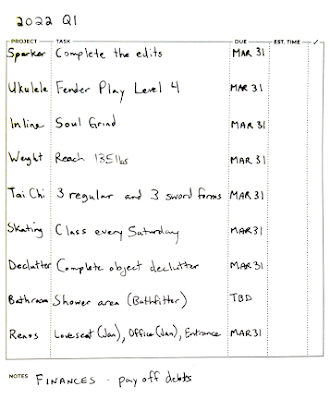 2022 Q1
PROJECT TASK DUE EST. TIME ✓
Sparker Complete the edits MAR 31
Ukulele Fender Play Level 4 MAR 31
Inline Soul Grind MAR 31
Weight Reach 135 lbs MAR 31
Tai Chi 3 regular and 3 sword forms MAR 31
Skating Class every Saturday MAR 31
Declutter Complete object declutter MAR 31
Bathroom Shower area (Bathfitter) TBD
Renos Loveseat (Jan), Office (Jan), Entrance MAR 31
NOTES FINANCES - pay off debts